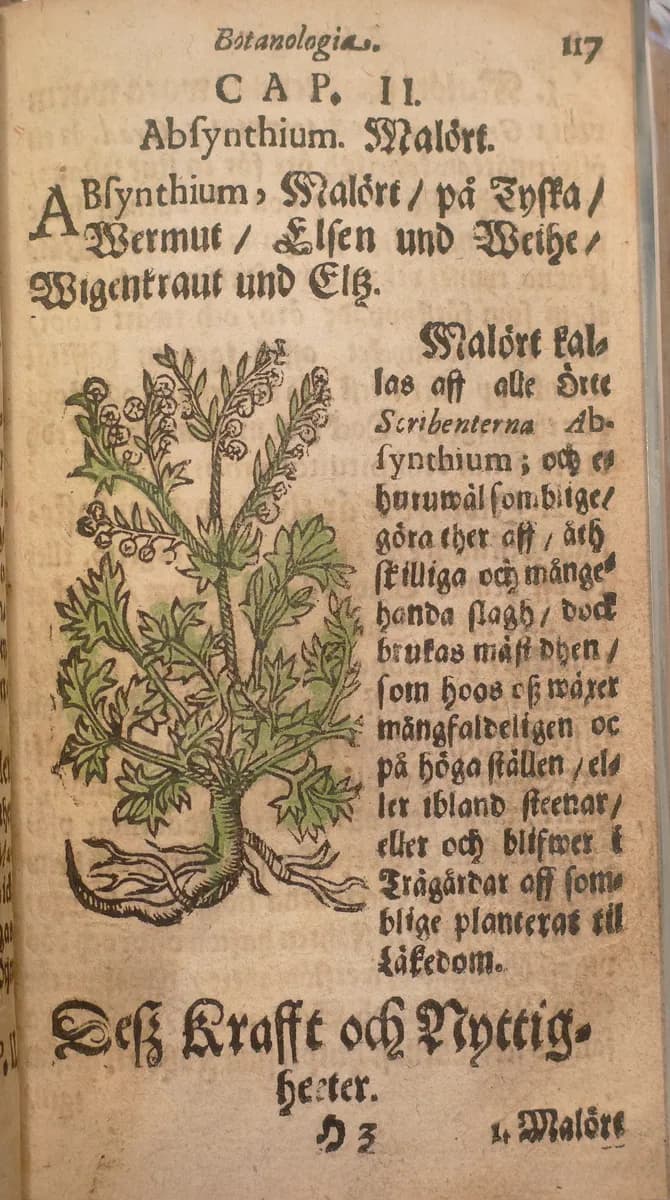 Botanologia.
117
CAP. II.
Abſynthium. Malört.
ABſynthium, Malört / på Tyſka /
Wermut / Elſen und Weihe /
Wigenkraut und Eltz.
Malört kal-
las aff alle Örte
Scribenterna Ab-
ſynthium; och e-
huruwäl ſomblige/
göra ther aff / åth
ſkilliga och månge-
handa ſlagh / dock
brukas mäſt dhen /
ſom hoos oſz wäxer
mångfaldeligen oc
på höga ſtällen / el-
ler ibland ſteenar /
eller och blifwer i
Trägårdar aff ſom-
blige planterat til
Läkedom.
Deſz Krafft och Nyttig-
heeter.
H 3
1. Malört